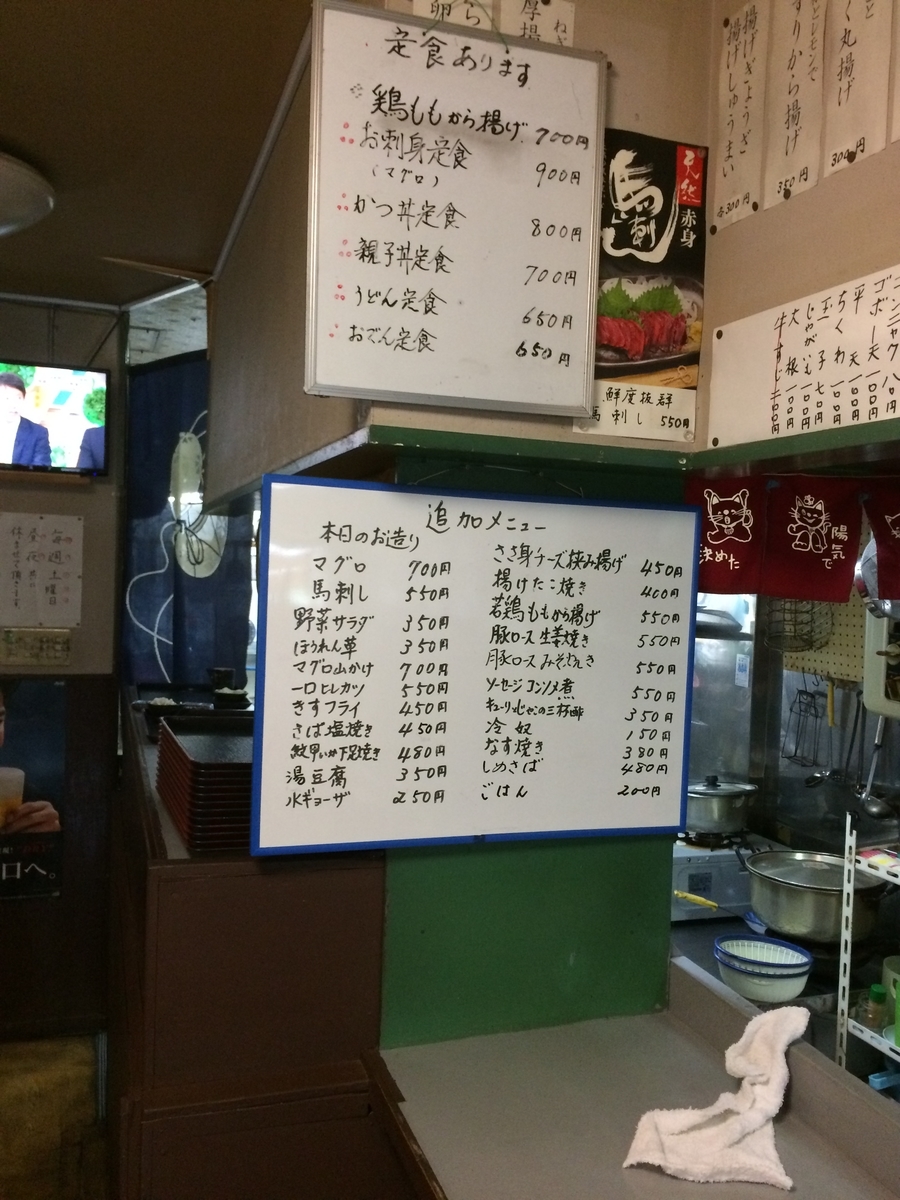 定食あります
鶏ももから揚げ 700円
お刺身定食 900円
(マグロ)
かつ丼定食 800円
親子丼定食 700円
うどん定食 650円
おでん定食 650円
天然
赤身
馬刺
鮮度抜群
馬刺し 550円
追加メニュー
本日のお造り
マグロ 700円
馬刺し 550円
野菜サラダ 350円
ほうれん草 350円
マグロ山かけ 700円
一口ヒレカツ 550円
きすフライ 450円
さば塩焼き 450円
紋甲いか下足焼き 480円
湯豆腐 350円
水ギョーザ 250円
ささ身チーズ挟み揚げ 450円
揚げたこ焼き 400円
若鶏ももから揚げ 550円
豚ロース生姜焼き 550円
豚ロースみそ焼き 550円
ソーセージコンソメ煮 550円
キューリとじゃこの三杯酢 350円
冷奴 150円
なす焼き 380円
しめさば 480円
ごはん 200円
く丸揚げ
300円
すりから揚げ
350円
揚げぎょうざ
揚げしゅうまい
各300円
コンニャク 八〇円
ゴボー天 一〇〇円
平天 一〇〇円
ちくわ 一〇〇円
玉子 七〇円
じゃがいも 一〇〇円
大根 一〇〇円
牛すじ 一〇〇円
決めた
陽気で
毎週土曜日
昼夜共
休ませて頂きます
口へ。